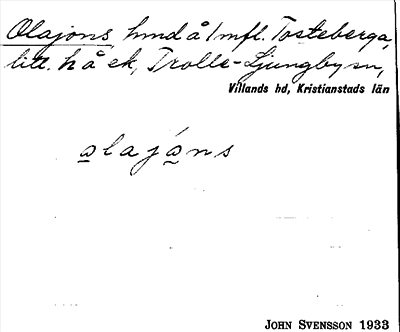 Olajons, hmd å 1 mfl. Tosteberga,
litt. h å ek, Trolle-Ljungby sn,
Villands hd, Kristianstads län
olajóns
JOHN SVENSSON 1933